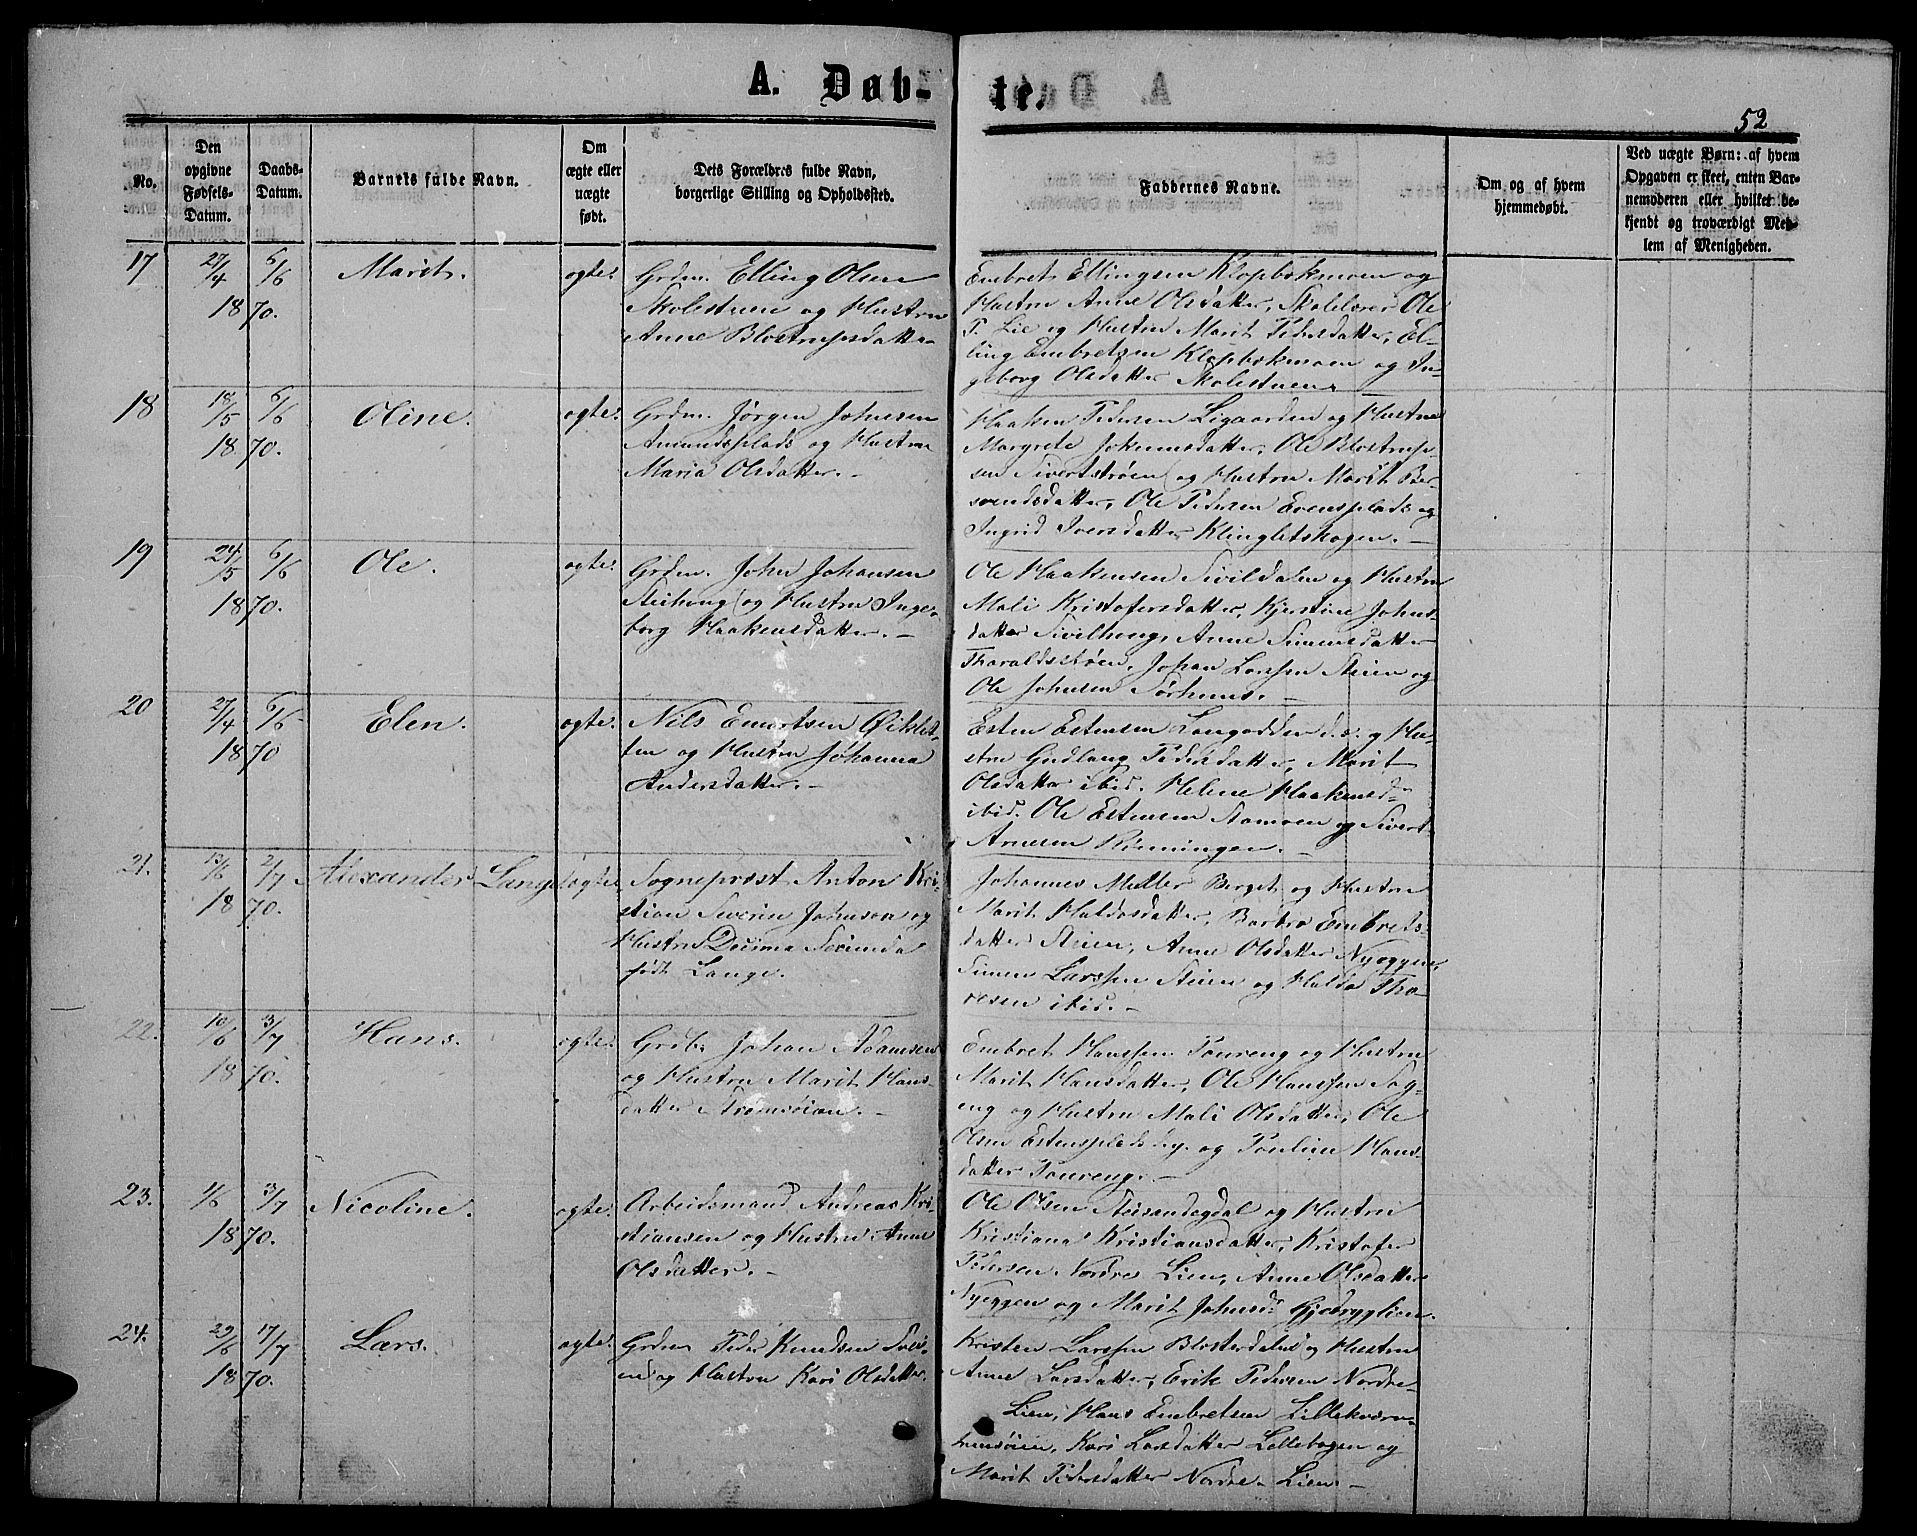 A. Døb-
te.
52
No.
Den
opgivne
Fødsels-
Datum.
Daabs-
Datum.
Barnets fulde Navn.
Om
ægte eller
uægte
født.
Dets Forældres fulde Navn,
borgerlige Stilling og Opholdssted.
Faddernes Navne.
Om og af hvem
hjemmedøbt.
Ved uægte Børn: af hvem
Opgaven er skeet, enten Bar-
nemoderen eller hvilket be-
kjendt og troværdigt Med-
lem af Menigheden.
17
27/4 1870.
6/6
Marit.
ægte.
Grdm. Elling Olsen
Skolestuen og Hustru
Anne Blostrupsdatter
Embret Ellingsen Klopbakmoen og
Hustru Anne Olsdatter, Skolelærer Ole
P. Lie og Hustru Marit Pedersdatter, El-
ling Embretsen Klopbakmoen og In-
geborg Olsdatter Skolestuen.
18
18/5 1870.
6/6
Oline.
ægte.
Grdm. Jørgen Johnsen
Amundsplads og Hustru
Maria Olsdatter. -
Haaken Pedersen Ligaarden og Hustru
Margrete Johannsdatter, Ole Blostrup-
sen Sivertstrøen og Hustru Marit Ber-
svendsdatter, Ole Pedersen Evensplads og
Ingrid Iversdatter Klingletskogen. -
19
24/5 1870.
6/6
Ole.
ægte.
Grdm. John Johansen
og Hustru Inge-
borg Haakensdatter. -
Ole Haakensen Sivildalen og Hustru
Mali Kristofersdatter, Kjerstine Johns-
datter Sivilhaug, Anne Simensdatter
Tharaldsstrøen, Johan Larssen Steien og
Ole Johnsen Sørhuus. -
20
27/4 1870
6/6
Elen.
ægte.
Nils Emertsen
og Hustru Johanna
Andersdatter. -
Esten Estensen Langodden d. s. og Hu-
stru Gudlaug Pedersdatter, Marit
Olsdatter ibid. Helene Haakensd.
ibid. Ole Estensen Aamoen og Sivert
Arnesen Rønningen. -
21.
13/6 1870.
2/7
Alexander Lange
ægte
Sogneprest Anton Kri-
stian Severin Johnson og
Hustru Decima Secunda
født Lange.
Johannes Møller Berget og Hustru
Marit Haldosdatter, Barbro Embrets-
datter Steien, Anne Olsdatter Nyeggen,
Simen Larssen Steien og Haldo Tho-
resen ibid. -
22.
10/6 1870.
3/7
Hans.
ægte.
Grdb. Johan Adamsen
og Hustru Marit Hans-
datter Strømsøien. -
Embret Hanssen Toureng og Hustru
Marit Hansdatter, Ole Hanssen Sag-
eng og Hustru Mali Olsdatter, Ole
Olsen Estensplads og Pauline Hans-
datter Toureng. -
23.
1/6 1870.
3/7
Nicoline.
ægte.
Arbeidsmand Andreas Kri-
stiansen og Hustru Anne
Olsdatter. -
Ole Olsen og Hustru
Kristiana Kristiansdatter, Kristofer
Pedersen Nordre Lien, Anne Olsdatter
Nyeggen og Marit Johnsdr Gjedrygglien.
24.
29/6 1870.
17/7
Lars.
ægte.
Grdm Peder Knudsen
og Hustru Kari Olsdatter.
Kristen Larssen Blosterdalen og Hustru
Anne Larsdatter, Erik Pedersen Nordre-
Lien, Hans Embretsen Lillekværn-
Kari Larsdatter Lillebogen og
Marit Pedersdatter Nordre-Lien. -